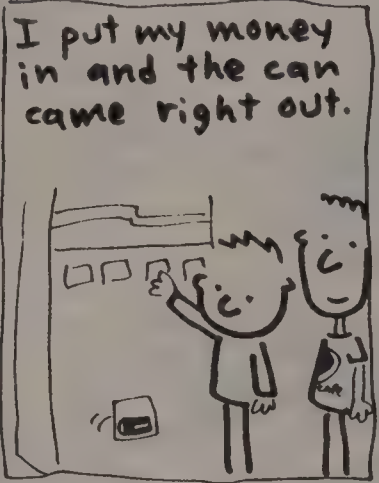 I put my money
in and the can
came right out.